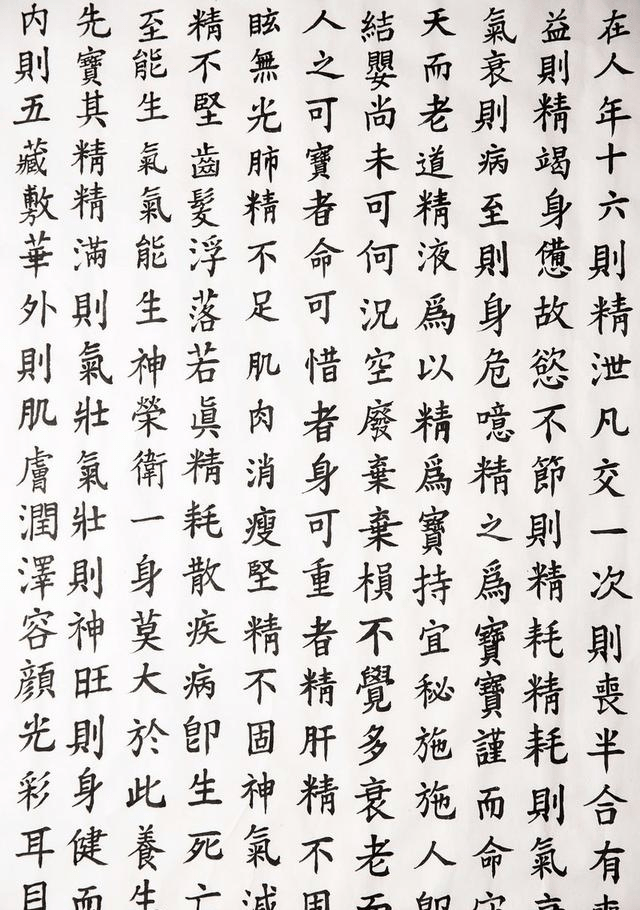 在人年十六則精泄凡交一次則喪半合有喪
益則精竭身憊故慾不節則精耗精耗則氣衰
氣衰則病至則身危噫精之爲寶寶謹而命
天而老道精液爲以精爲寶持宜秘施施人卽
結嬰尚未可何況空廢棄棄損不覺多衰老而
人之可寶者命可惜者身可重者精肝精不固
眩無光肺精不足肌肉消瘦堅精不固神氣減
精不堅齒髮浮落若眞精耗散疾病卽生死亡
至能生氣氣能生神榮衛一身莫大於此養生
先寶其精精滿則氣壯氣壯則神旺則身健而
內則五藏敷華外則肌膚潤澤容顔光彩耳目